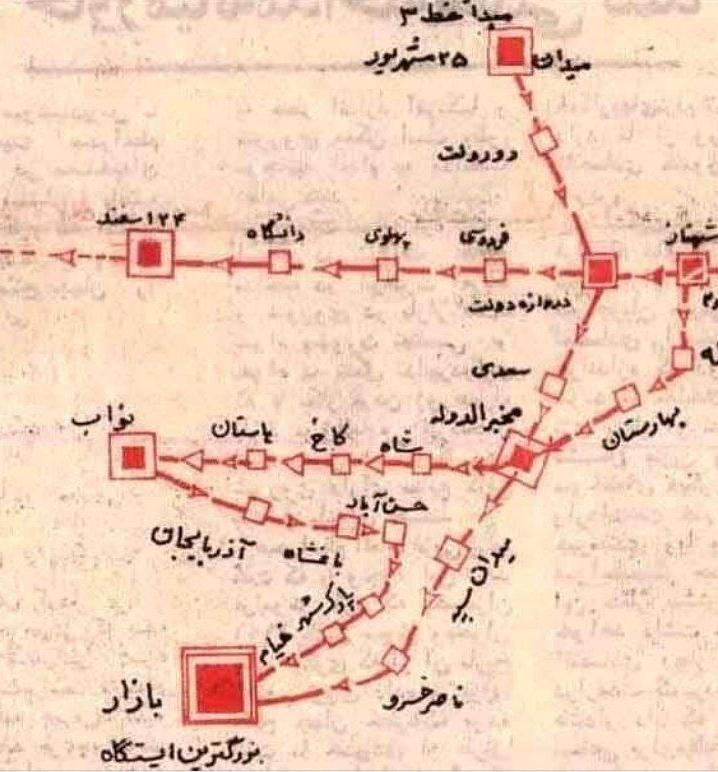 مبدأ خط ۳
میدان ۲۵ شهریور
دورولت
۲۴ اسفند
دانشگاه
پهلوی
فردوسی
شهناز
دروازه دولت
سعدی
مخبرالدوله
بهارستان
شاه
کاخ
باستان
نواب
حسن آباد
باغشاه
آذربایجان
میدان سپه
پارک شهر
خیام
ناصرخسرو
بازار
بزرگترین ایستگاه